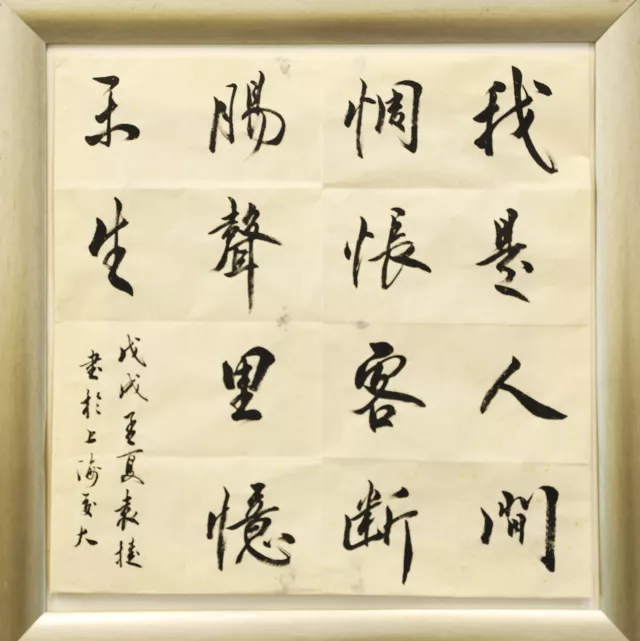 我是人間
惆悵客斷
腸聲里憶
平生
戊戌孟夏袁捷
書於上海交大